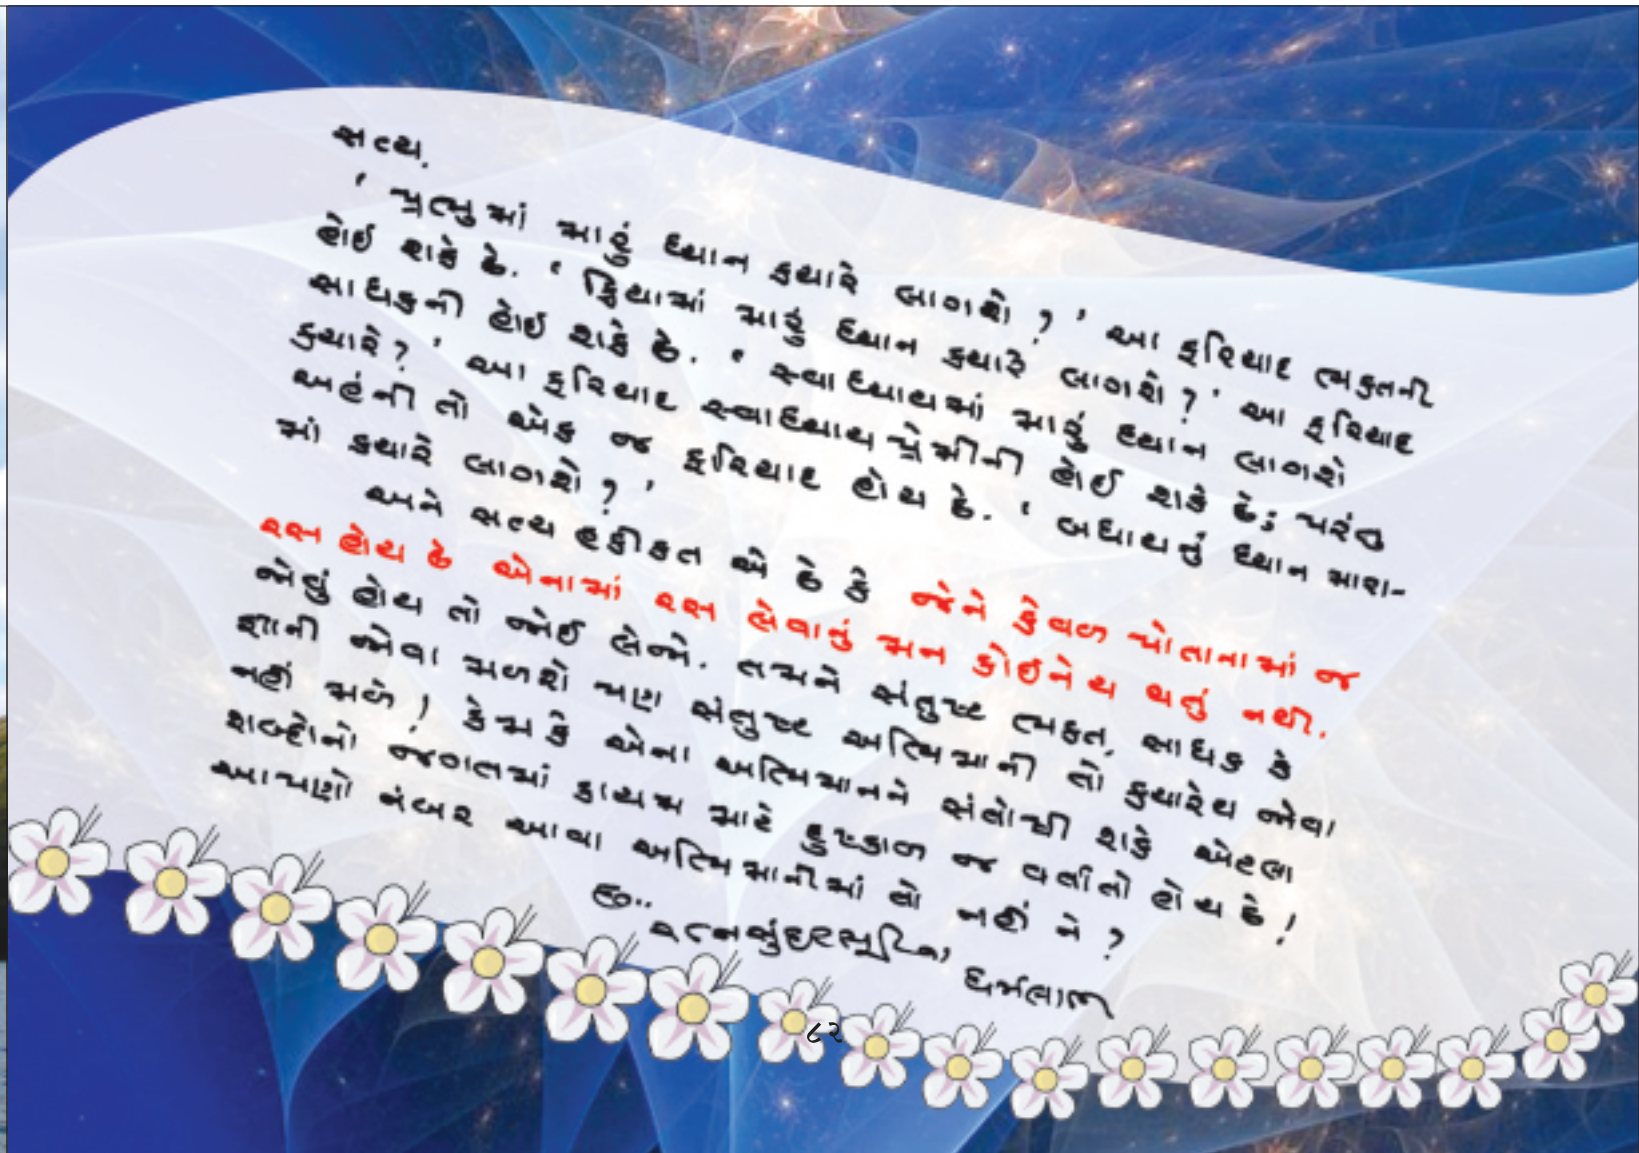 સત્ય,
'પ્રભુમાં મારું ધ્યાન ક્યારે લાગશે ?' આ ફરિયાદ ભક્તની
હોઈ શકે છે. 'ક્રિયામાં મારું ધ્યાન ક્યારે લાગશે ?' આ ફરિયાદ
સાધકની હોઈ શકે છે. 'સ્વાધ્યાયમાં મારું ધ્યાન લાગશે
ક્યારે ?' આ ફરિયાદ સ્વાધ્યાય પ્રેમીની હોઈ શકે છે; પરંતુ
અહંની તો એક જ ફરિયાદ હોય છે. 'બધાયનું ધ્યાન મારા-
માં ક્યારે લાગશે ?'
અને સત્ય હકીકત એ છે કે જેને કેવળ પોતાનામાં જ
રસ હોય છે એનામાં રસ લેવાનું મન કોઈને ય થતું નથી.
જોવું હોય તો જોઈ લેજે. તમને સંતુષ્ટ ભક્ત, સાધક કે
જ્ઞાની જોવા મળશે પણ સંતુષ્ટ અભિમાની તો ક્યારેય જોવા
નહીં મળે ! કેમ કે એના અભિમાનને સંતોષી શકે એટલા
શબ્દોનો જગતમાં કાયમ માટે દુષ્કાળ જ વર્તાતો હોય છે !
આપણો નંબર આવા અભિમાનીમાં તો નહીં ને ?
લિ..
રત્નસુંદરસૂરિના
ધર્મલાભ
૮૨